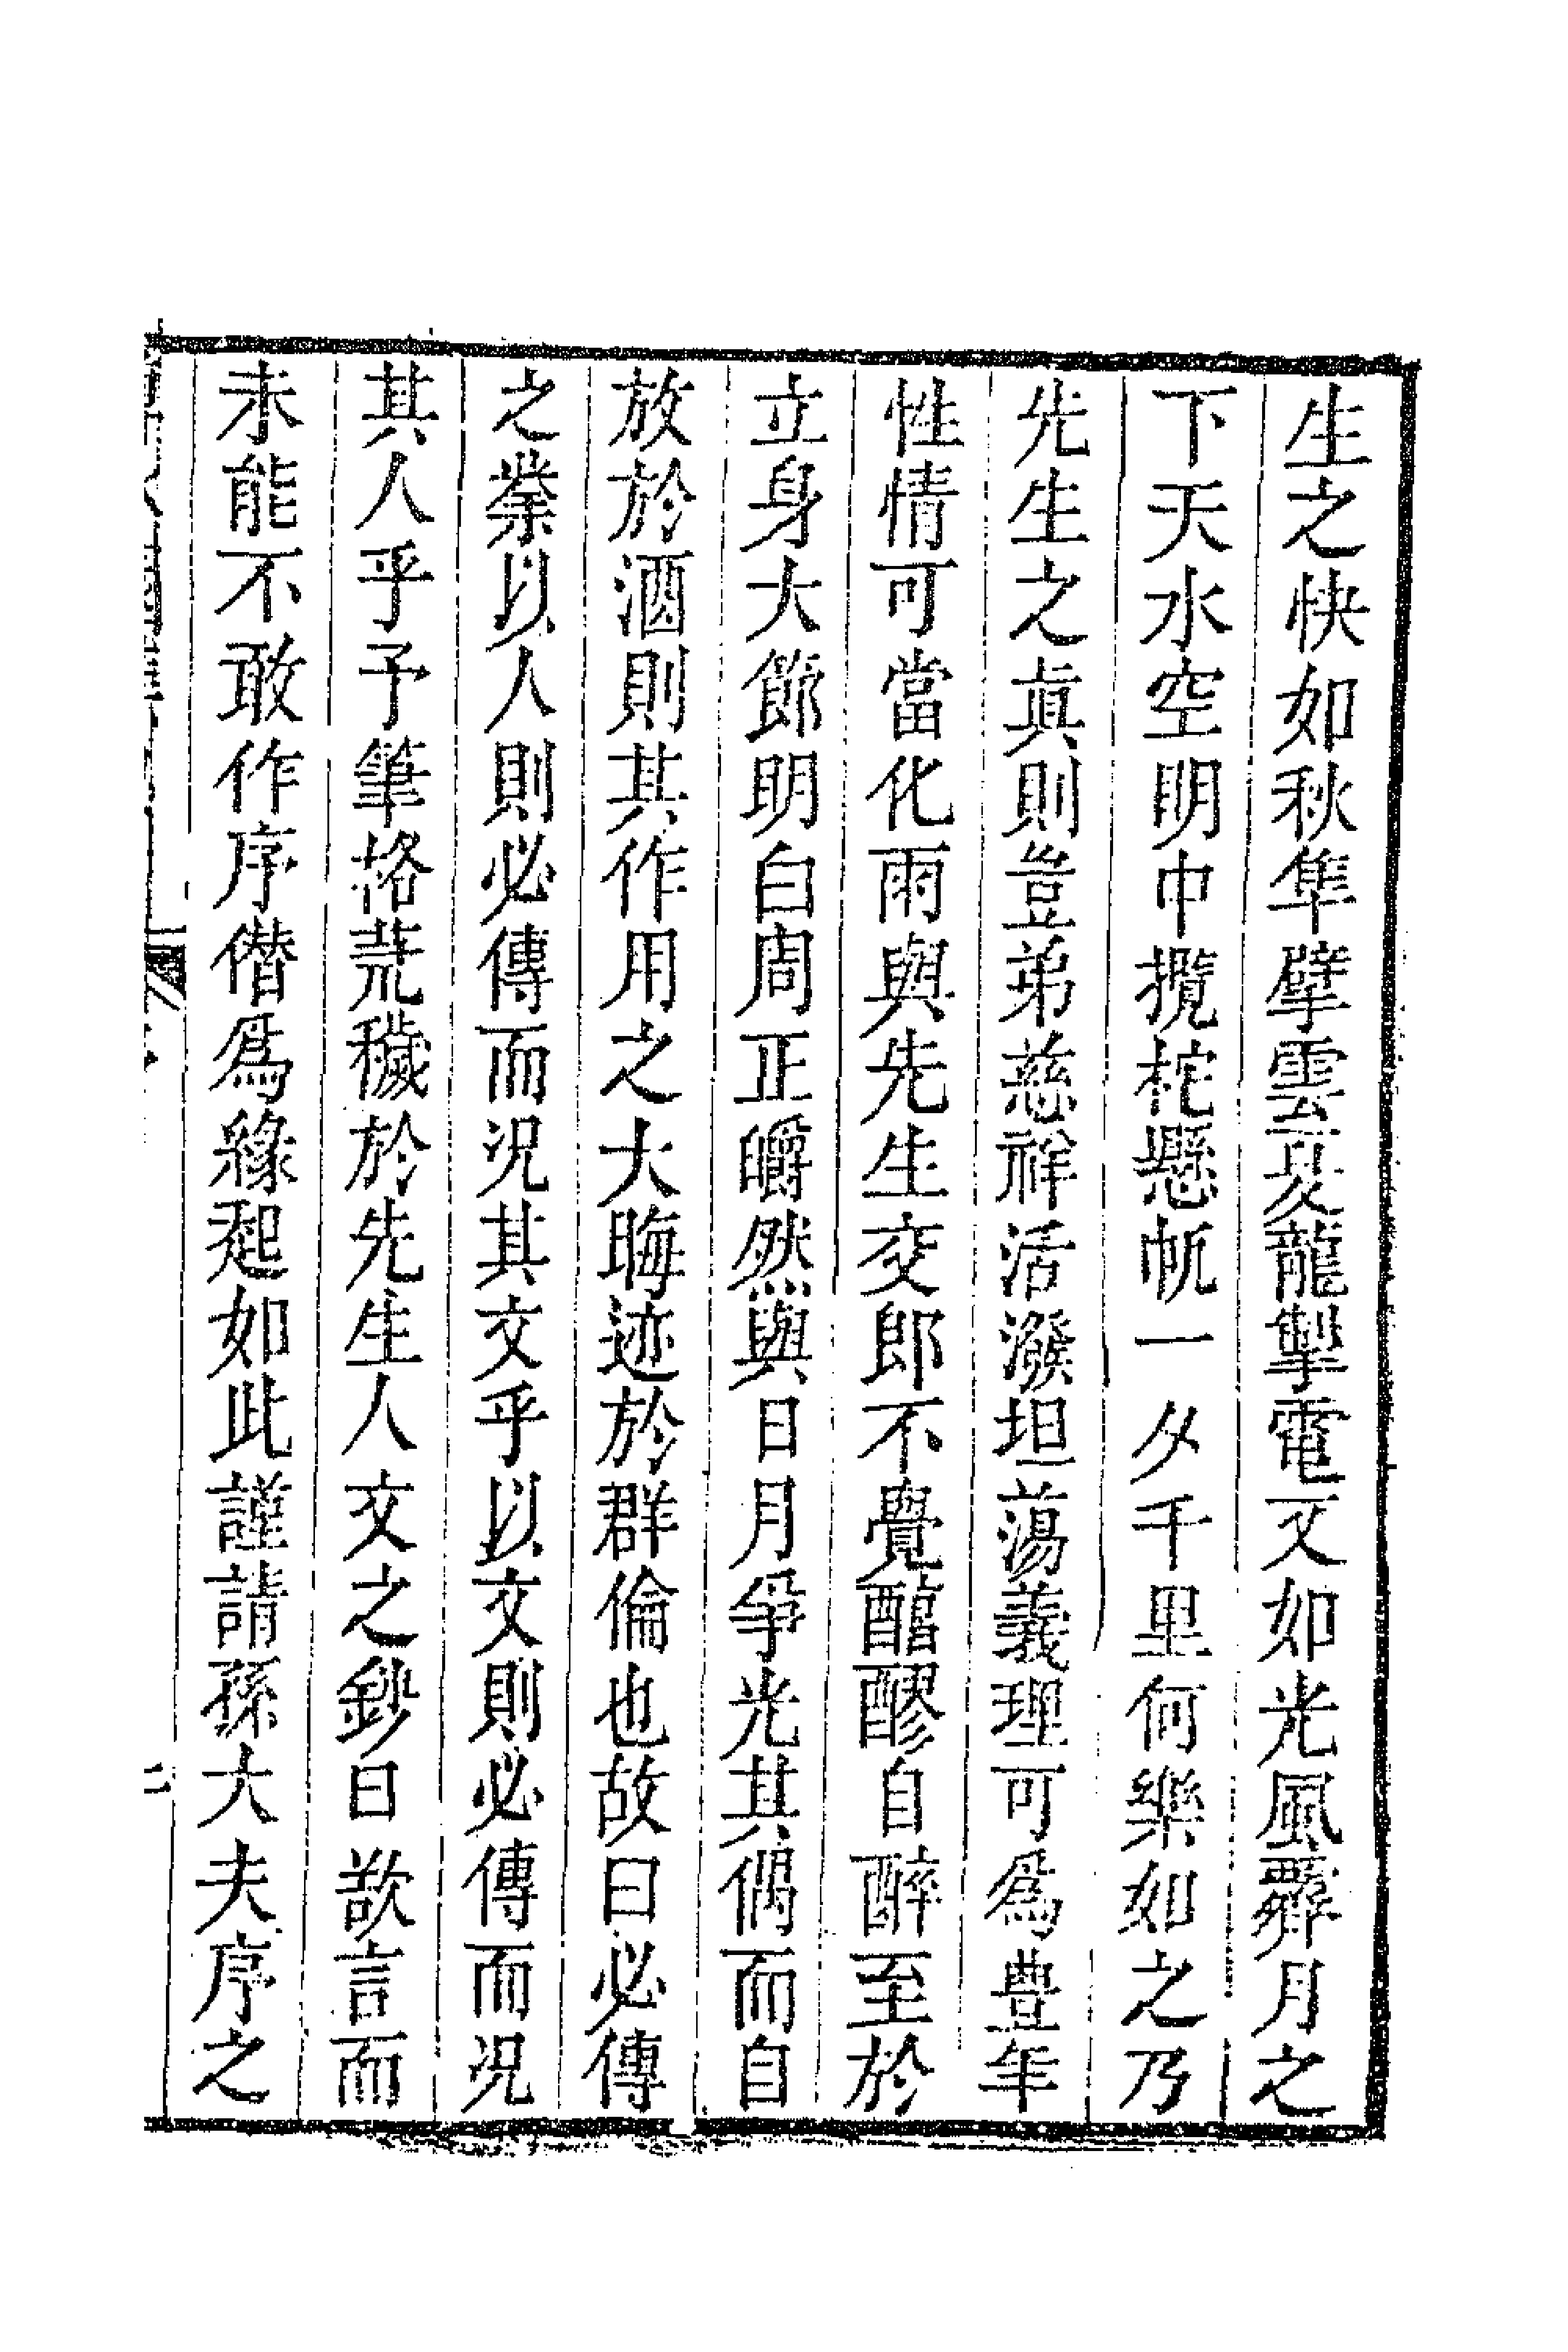 生之快如秋隼擘雲夭龍掣電又如光風霽月之
下天水空明中攬柁懸帆一夕千里何樂如之乃
先生之眞則豈弟慈祥活潑坦蕩義理可爲豊年
性情可當化雨與先生交郎不覺醕醪自醉至於
立身大節明白周正皭然與日月爭光其偶而自
放於酒則其作用之大晦迹於群倫也故曰必傳
之業以人則必傳而况其文乎以文則必傳而况
其人乎予筆格荒穢於先生人文之鈔曰欲言而
未能不敢作序僭爲緣起如此謹請孫大夫序之